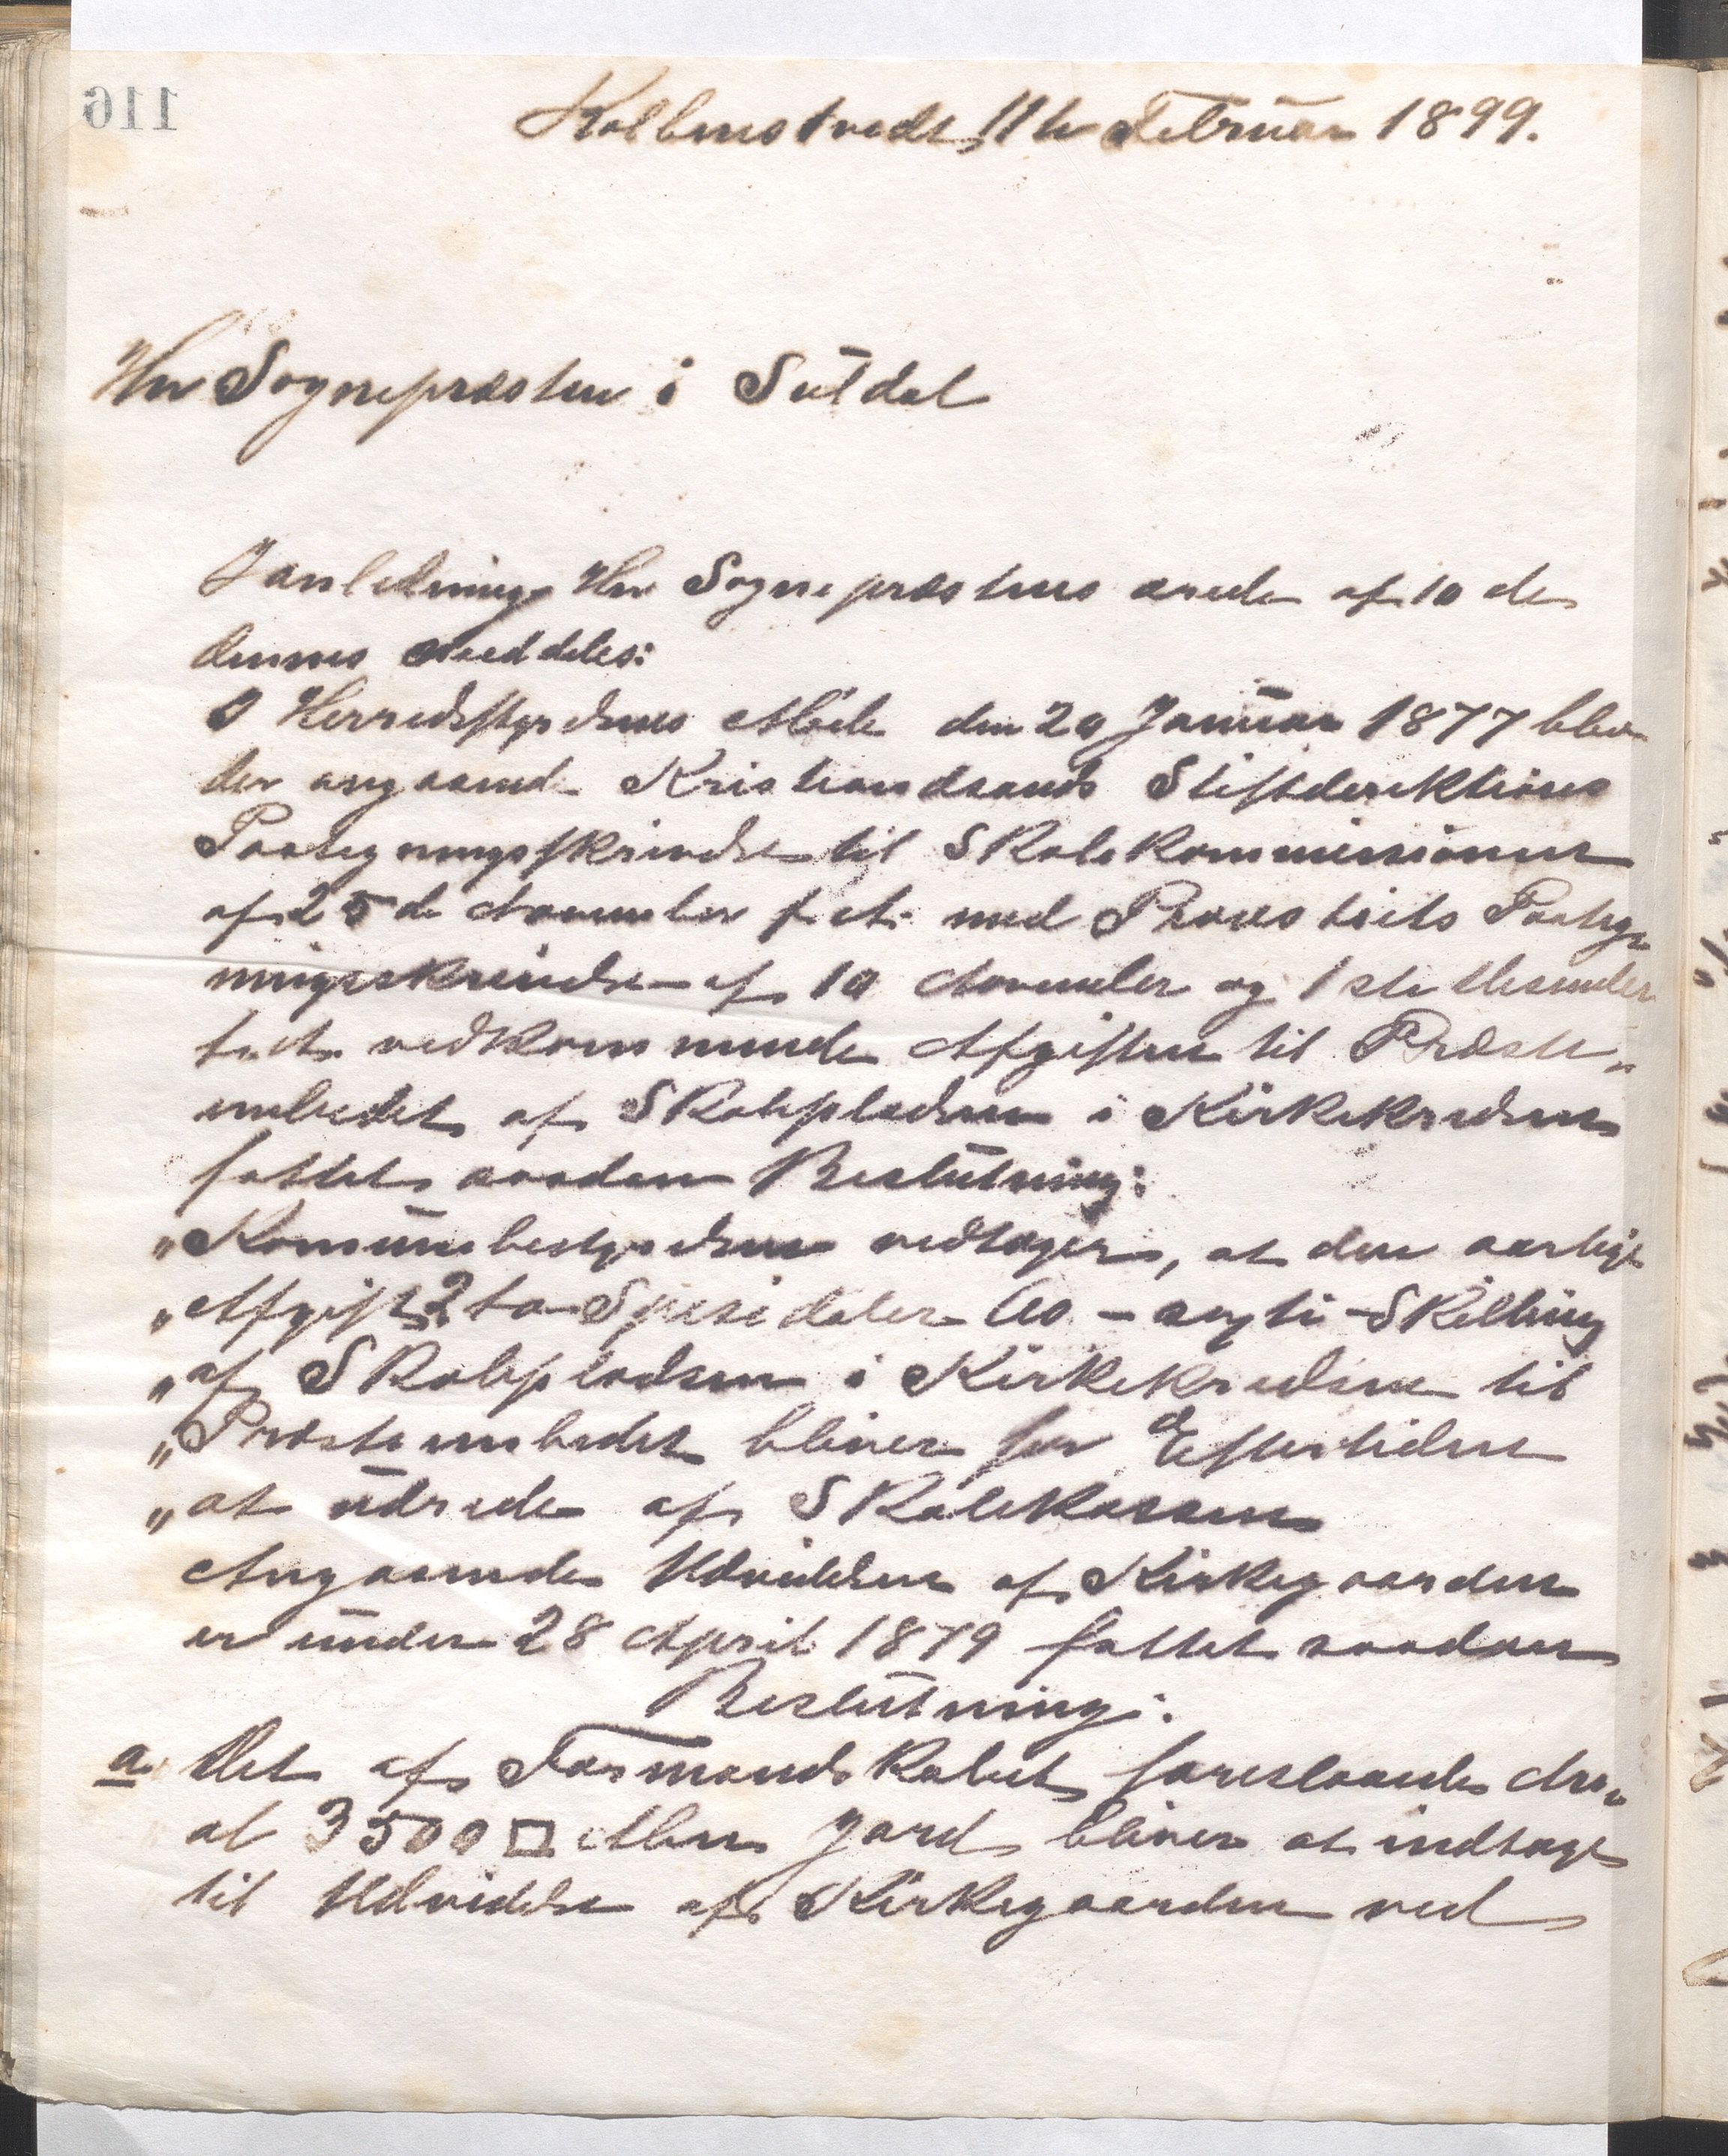 116
Kolbenstvedt, 11te Februar 1899.
Hr Sognepræsten i Suldal
I anledning Hr Sognepræstens ærede af 10 de
dennes meddeles:
I Herredsstyrelsens Møde den 20 Januar 1877 blev
der angaaende Kristiansands Stiftdirektions
Paategningsskrivelse til Skolekommissionen
af 25de November f. A. med Provstiets Paateg-
ningsskrivelse af 10 November og 1ste Desember
f. A. vedkommende Afgiften til Præste-
embedet af Skolepladsen i Kirkekredsen
fattet saadan Beslutning:
„Komunebestyrelsen vedtager, at den aarlige
„Afgift 2 to Spesidaler 60 - sexti - Skilling
„af Skolepladsen i Kirkekredsen til
„Præsteembedet bliver for Eftertiden
„at udrede af Skolekassen
Angaaende Udvidelsen af Kirkegaarden
er under 28 April 1879 fattet saadan
Beslutning:
a. Det af Formandskabet foreslaaede Are-
al 3500 □ Alen Jord bliver at indtage
til Udvidelse af Kirkegaarden ved